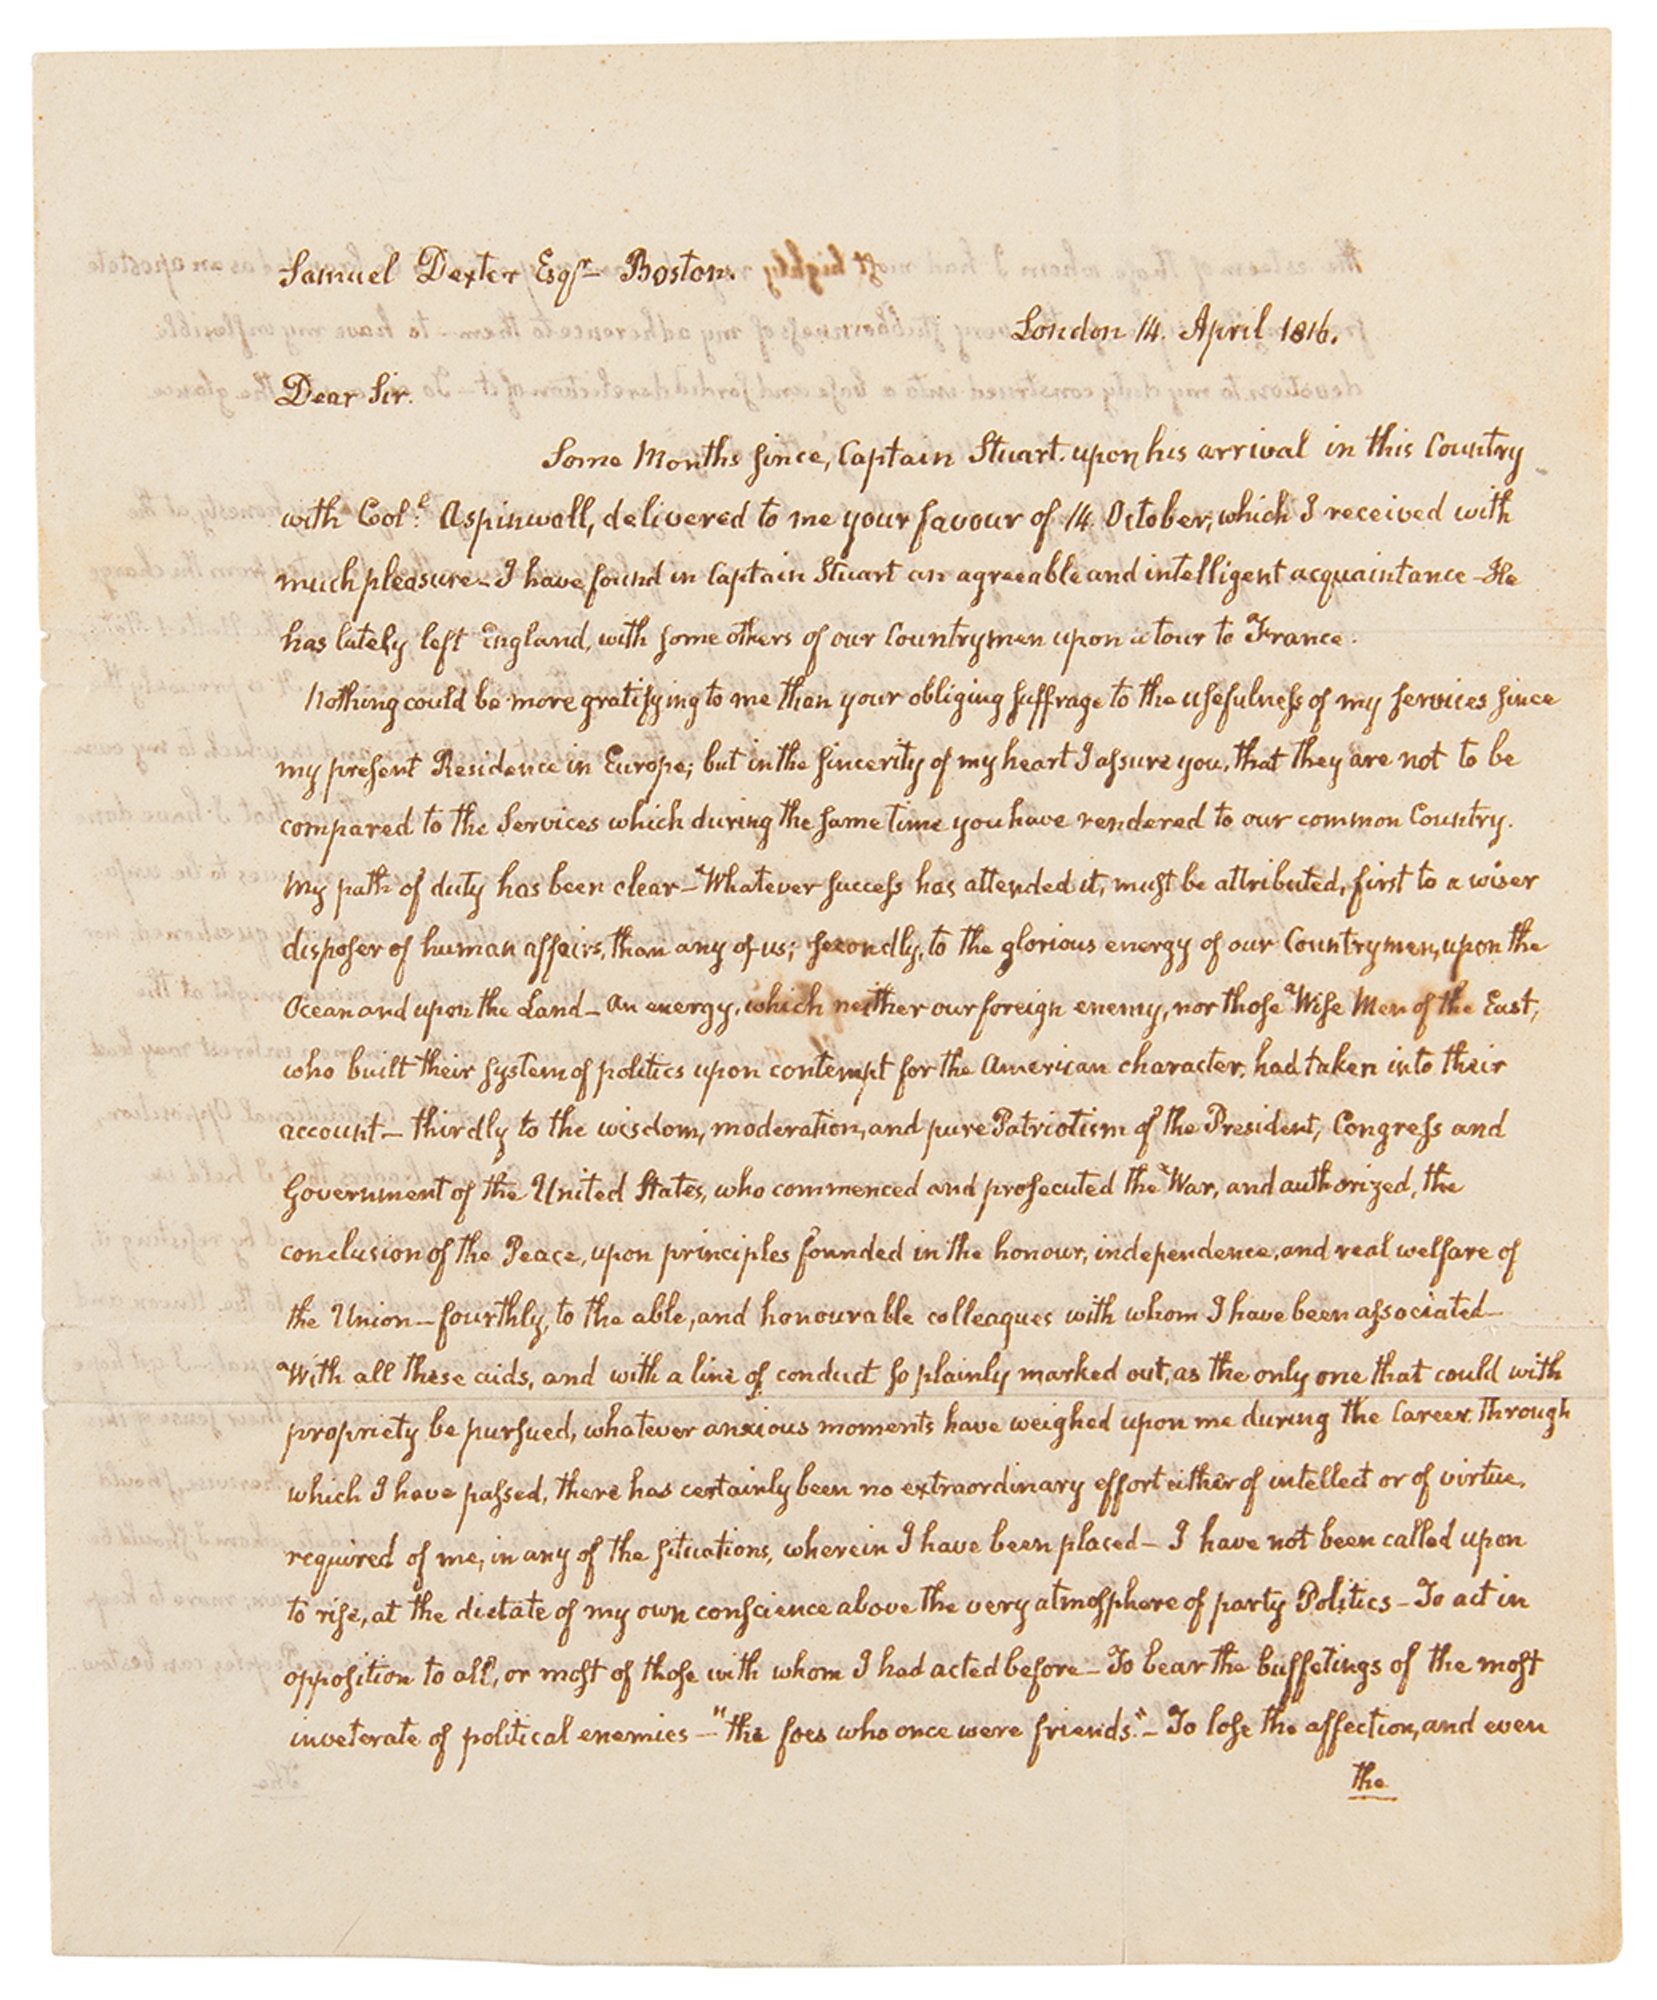 Samuel Dexter Esqr Boston.
London 14. April 1816.
Dear Sir.
Some Months since, Captain Stuart. upon his arrival in this Country
with Col.l Aspinwall, delivered to me your favour of 14. October, which I received with
much pleasure – I have found in Captain Stuart an agreeable and intelligent acquaintance – He
has lately left England, with some others of our Countrymen upon a tour to France.
Nothing could be more gratifying to me than your obliging suffrage to the usefulness of my services since
my present Residence in Europe; but in the sincerity of my heart I assure you, that they are not to be
compared to the Services which during the same time you have rendered to our common Country.
My path of duty has been clear – Whatever success has attended it, must be attributed, first to a wiser
disposer of human affairs, than any of us; secondly, to the glorious energy of our Countrymen, upon the
Ocean and upon the Land – an energy, which neither our foreign enemy, nor those Wise Men of the East,
who built their system of politics upon contempt for the American character, had taken into their
account – thirdly to the wisdom, moderation, and pure Patriotism of the President, Congress and
Government of the United States, who commenced and prosecuted the War, and authorized, the
conclusion of the Peace, upon principles founded in the honour, independence, and real welfare of
the Union – fourthly, to the able, and honourable colleagues with whom I have been associated –
With all these aids, and with a line of conduct so plainly marked out, as the only one that could with
propriety be pursued, whatever anxious moments have weighed upon me during the Career through
which I have passed, there has certainly been no extraordinary effort either of intellect or of virtue,
required of me, in any of the situations, wherein I have been placed – I have not been called upon
to rise, at the dictate of my own conscience above the very atmosphere of party Politics – To act in
opposition to all, or most of those with whom I had acted before – To bear the buffetings of the most
inveterate of political enemies – "the foes who once were friends." – To lose the affection, and even
the